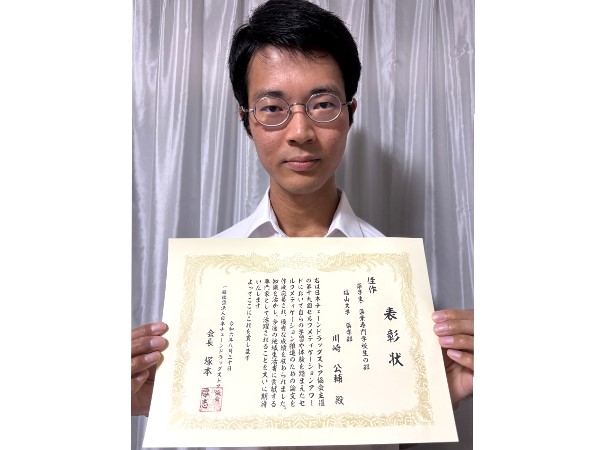 表彰状
佳作
薬学生・薬業専門学校生の部
福山大学 薬学部
川崎 公輔 殿
右は日本チェーンドラッグストア協会主催
の第十九回セルフメディケーションアワー
ドにおいて自らの学習や体験を踏まえたセ
ルフメディケーション推進のための論文を
作成応募され、優秀な成績を収められました。
知識を活かし、今後の地域生活者に貢献する
専門家として活躍されることを大いに期待
いたします
よってここにこれを賞します
令和六年八月三十日
一般社団法人日本チェーンドラッグストア
会長 塚本